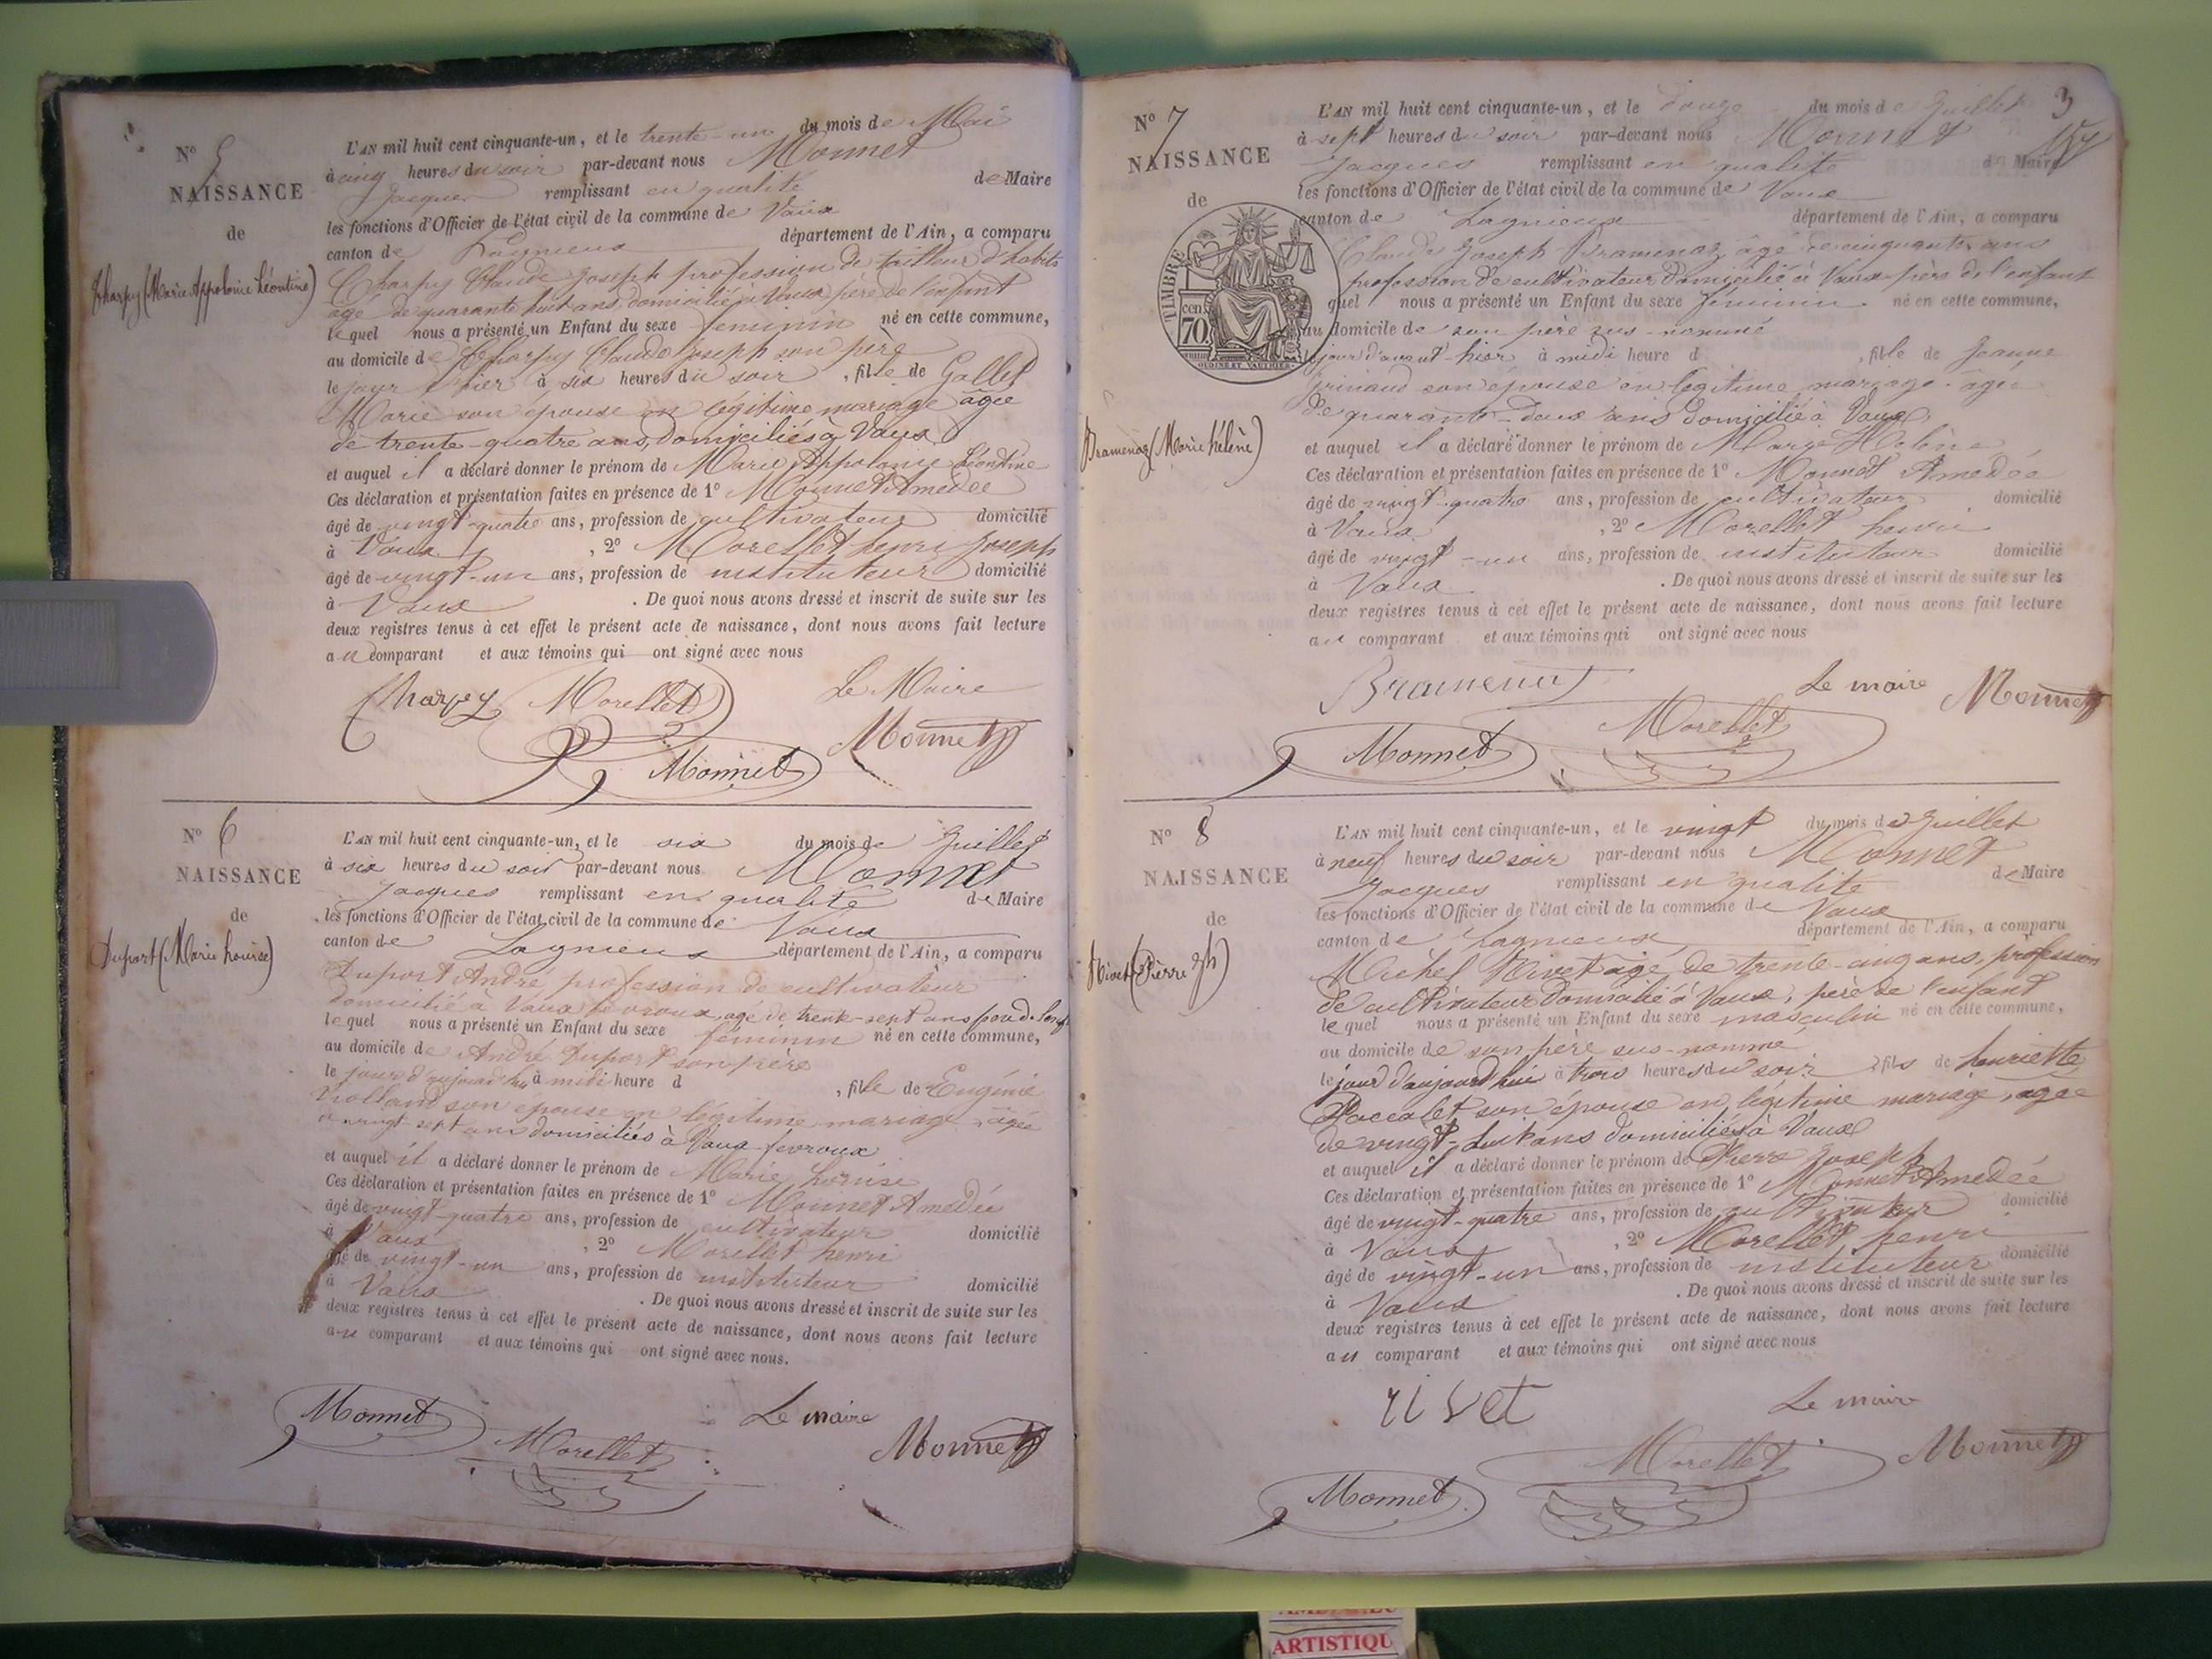 N° 5
NAISSANCE
de
Charpy (Marie Appolonie Léontine)
L'AN mil huit cent cinquante-un, et le trente-un du mois de Mai
à cinq heures du soir par-devant nous Monnet
Jacques remplissant en qualité de Maire
les fonctions d'Officier de l'état civil de la commune de Vaux
canton de Lagnieux département de l'Ain, a comparu
Charpy Claude Joseph profession de tailleur d'habits
âgé de quarante huit ans domicilié à Vaux père de l'enfant
lequel nous a présenté un Enfant du sexe feminin né en cette commune,
au domicile de Charpy Claude Joseph son père
le jour d'hier à six heures du soir, fille de Gallet
Marie son épouse en légitime mariage âgée
de trente-quatre ans, domiciliés à Vaux
et auquel il a déclaré donner le prénom de Marie Appolonie Léontine
Ces déclaration et présentation faites en présence de 1° Monnet Amédée
âgé de vingt-quatre ans, profession de cultivateur domicilié
à Vaux, 2° Morellet henri Joseph
âgé de vingt-un ans, profession de instituteur domicilié
à Vaux. De quoi nous avons dressé et inscrit de suite sur les
deux registres tenus à cet effet le présent acte de naissance, dont nous avons fait lecture
au comparant et aux témoins qui ont signé avec nous
Charpey Morellet Le Maire
Monnet Monnet
N° 6
NAISSANCE
de
Duport (Marie Louise)
L'AN mil huit cent cinquante-un, et le six du mois de Juillet
à six heures du soir par-devant nous Monnet
Jacques remplissant en qualité de Maire
les fonctions d'Officier de l'état civil de la commune de Vaux
canton de Lagnieux département de l'Ain, a comparu
Duport André profession de cultivateur
domicilié à Vaux fevroux, agé de trente-sept ans
lequel nous a présenté un Enfant du sexe féminin né en cette commune,
au domicile de André Duport son père
le jour d'aujourd'hui à midi heure d, fille de Eugénie
Rolland son épouse en légitime mariage, âgée
vingt-sept ans domiciliés à Vaux fevroux
et auquel il a déclaré donner le prénom de Marie Louise
Ces déclaration et présentation faites en présence de 1° Monnet Amédée
âgé de vingt-quatre ans, profession de cultivateur domicilié
à Vaux, 2° Morellet henri
âgé de vingt-un ans, profession de instituteur domicilié
à Vaux. De quoi nous avons dressé et inscrit de suite sur les
deux registres tenus à cet effet le présent acte de naissance, dont nous avons fait lecture
au comparant et aux témoins qui ont signé avec nous.
Monnet Morellet Le maire
Monnet
3
N° 7
NAISSANCE
de
TIMBRE
70 cen
OUDINÉ ET VAUTHIER
Bramenoz (Marie hélène)
L'AN mil huit cent cinquante-un, et le douze du mois de Juillet
à sept heures du soir par-devant nous Monnet
Jacques remplissant en qualité de Maire
les fonctions d'Officier de l'état civil de la commune de Vaux
canton de Lagnieux département de l'Ain, a comparu
Claude Joseph Bramenoz âgé de cinquante ans
profession de cultivateur domicilié à Vaux père de l'enfant
quel nous a présenté un Enfant du sexe féminin né en cette commune,
au domicile de son père sus-nommé
le jour d'avant-hier à midi heure d, fille de Jeanne
Grinand son épouse en légitime mariage âgée
de quarante-deux ans domicilié à Vaux
et auquel il a déclaré donner le prénom de Marie Hélène
Ces déclaration et présentation faites en présence de 1° Monnet Amédée
âgé de vingt-quatre ans, profession de cultivateur domicilié
à Vaux, 2° Morellet henri
âgé de vingt-un ans, profession de instituteur domicilié
à Vaux. De quoi nous avons dressé et inscrit de suite sur les
deux registres tenus à cet effet le présent acte de naissance, dont nous avons fait lecture
au comparant et aux témoins qui ont signé avec nous
Bramenoz Le maire Monnet
Monnet Morellet
N° 8
NAISSANCE
de
Rivet (Pierre Jph)
L'AN mil huit cent cinquante-un, et le vingt du mois de Juillet
à neuf heures du soir par-devant nous Monnet
Jacques remplissant en qualité de Maire
les fonctions d'Officier de l'état civil de la commune de Vaux
canton de Lagnieux département de l'Ain, a comparu
Michel Rivet âgé de trente-cinq ans, profession
de cultivateur domicilié à Vaux, père de l'enfant
lequel nous a présenté un Enfant du sexe masculin né en cette commune,
au domicile de son père sus-nommé
le jour d'aujourd'hui à trois heures du soir, fils de henriette
Paccalet son épouse en légitime mariage, agée
de vingt-huit ans domiciliés à Vaux
et auquel il a déclaré donner le prénom de Pierre Joseph
Ces déclaration et présentation faites en présence de 1° Monnet Amédée
âgé de vingt-quatre ans, profession de cultivateur domicilié
à Vaux, 2° Morellet henri
âgé de vingt-un ans, profession de instituteur domicilié
à Vaux. De quoi nous avons dressé et inscrit de suite sur les
deux registres tenus à cet effet le présent acte de naissance, dont nous avons fait lecture
au comparant et aux témoins qui ont signé avec nous
rivet Le maire
Monnet Morellet Monnet
ARTISTIQU